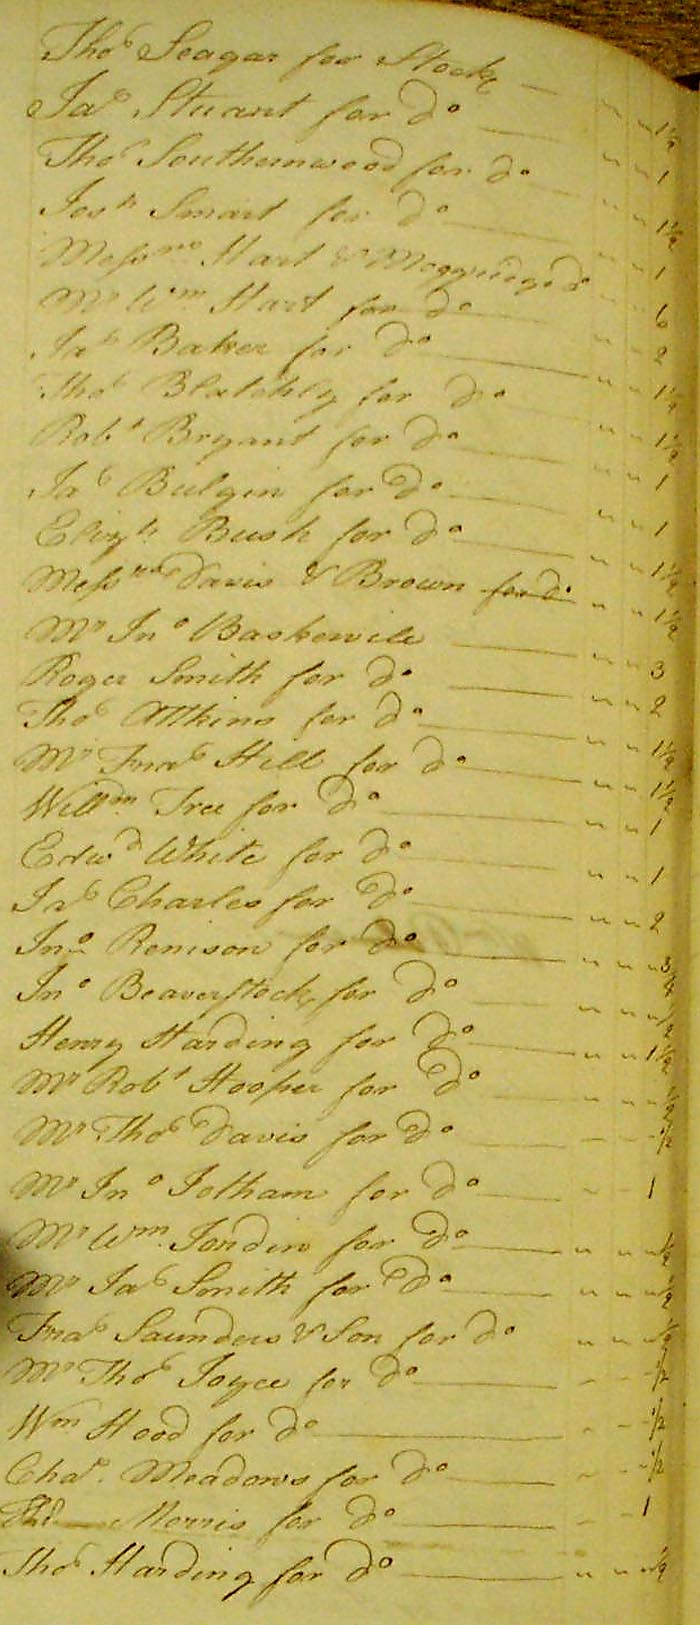 Thos Seagar for Stock — " " 1½
Jas Stuart for Do — " " 1
Thos Southernwood for Do — " " 1½
Josh Smart for Do — " " 1
Messrs Hart & Moggridge Do " " 6
Mr Wm Hart for Do — " " 2
Jas Baker for Do — " " 1½
Thos Blatchly for Do " " 1½
Robt Bryant for Do — " " 1
Jas Bulgin for Do — " " 1
Elizth Bush for Do — " " 1½
Messrs Davis & Brown for Do " " 1½
Mr Jno Baskervile — " " 3
Roger Smith for Do — " " 2
Thos Atkins for Do — " " 1½
Mr Fras Hill for Do — " " 1½
Willm Tree for Do — " " 1
Edwd White for Do — " " 1
Jas Charles for Do — " " 2
Jno Renison for Do — " "
Jno Beaverstock for Do — " " ½
Henry Harding for Do — " " 1½
Mr Robt Hooper for Do — " " ½
Mr Thos Davis for Do — " " ½
Mr Jno Jotham for Do — " 1
Mr Wm Jondin for Do — " " ½
Mr Jas Smith for Do — " " ½
Fras Saunders & Son for Do " " ½
Mr Thos Joyce for Do — " " ½
Wm Hood for Do — " " ½
Chas. Meadows for Do — " " ½
Morris for Do — " " 1
Thos Harding for Do — " " ½